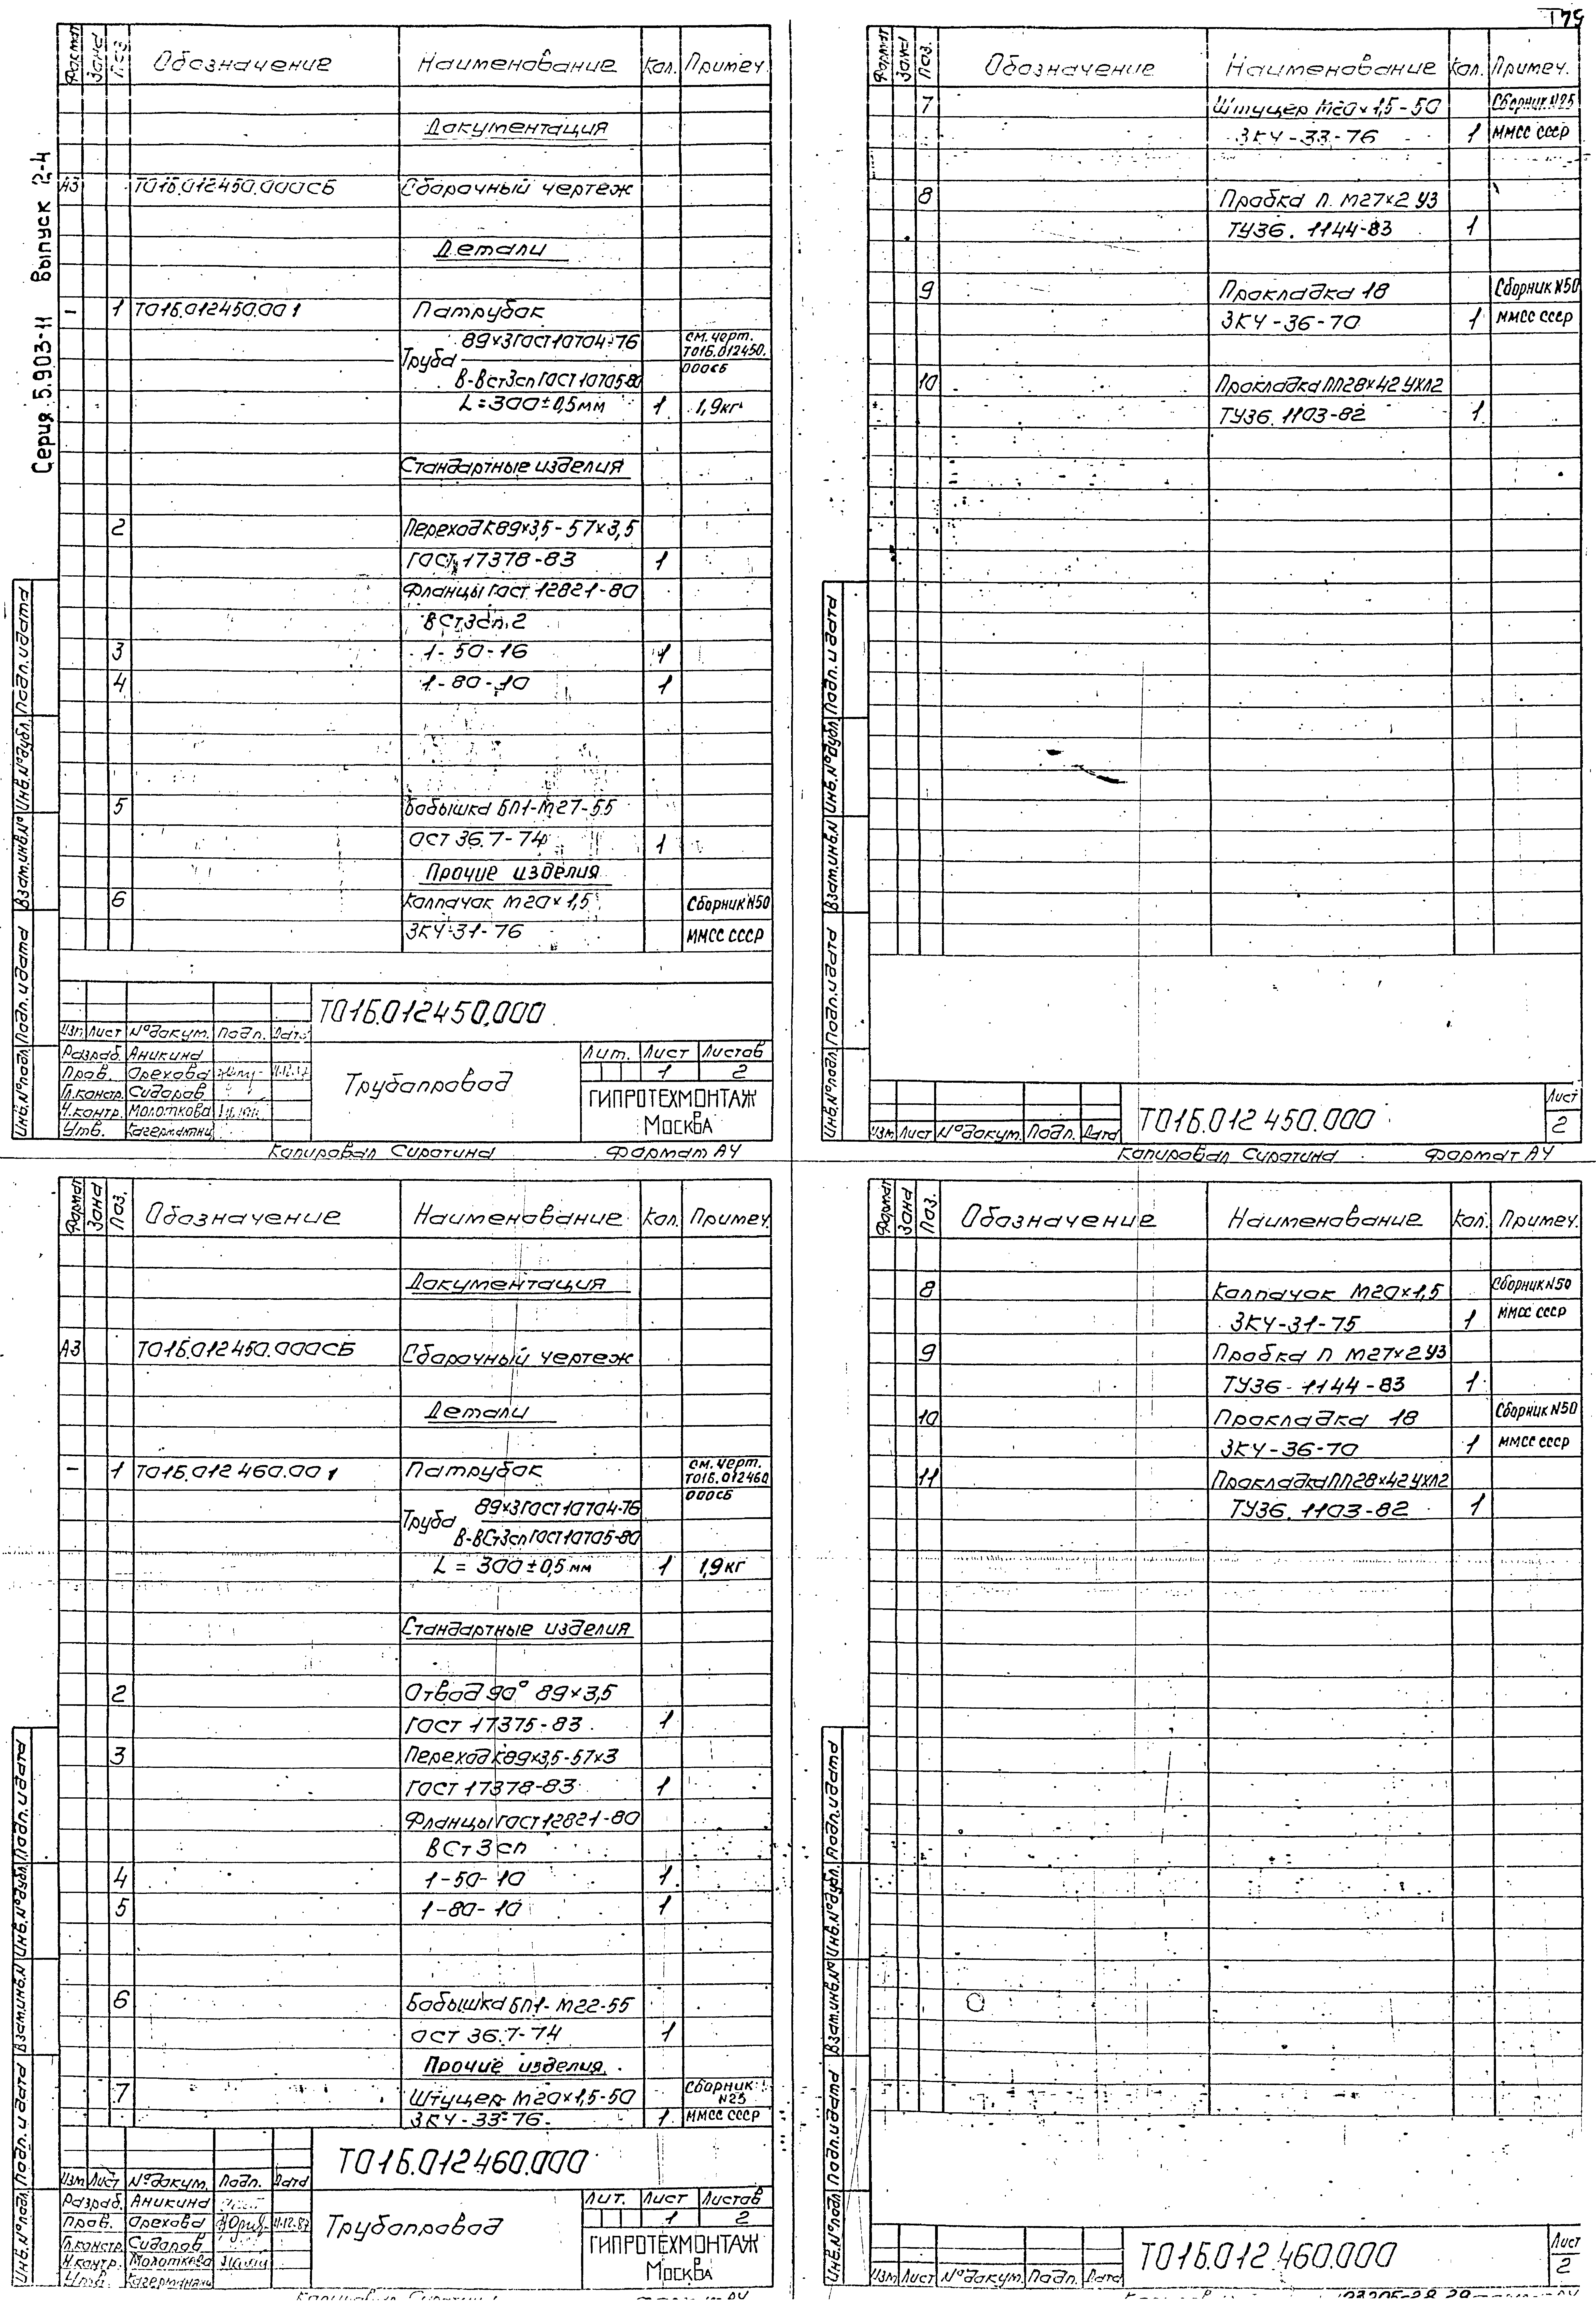 Серия 5.903-11 Выпуск 2-4
Формат Зона Поз. Обозначение Наименование Кол. Примеч.
Документация
А3 Т01Б.012450.000СБ Сборочный чертеж
Детали
- 1 Т01Б.012450.001 Патрубок
89×3 ГОСТ 10704-76 см. черт.
Труба Т01Б.012450.
В-ВСт3сп ГОСТ 10705-80 000СБ
L=300±0,5мм 1 1,9кг
Стандартные изделия
2 Переход К89×3,5-57×3,5
ГОСТ 17378-83 1
Фланцы ГОСТ 12821-80
ВСт3сп.2
3 1-50-16 1
4 1-80-10 1
5 Бобышка БП1-М27-55
ОСТ 36.7-74 1
Прочие изделия
6 Колпачок М20×1,5 Сборник N50
ЗК4-31-76 ММСС СССР
Т01Б.012450.000
Изм. Лист №докум. Подп. Дата
Разраб. Аникина
Пров. Орехова
Гл.констр. Сидоров
Н.контр. Молоткова
Утв.
Трубопровод
Лит. Лист Листов
1 2
ГИПРОТЕХМОНТАЖ
Москва
Инв.№подл. Подп. и дата Взам.инв.№ Инв.№дубл. Подп. и дата
Копировал Сиротина Формат А4
Формат Зона Поз. Обозначение Наименование Кол. Примеч.
7 Штуцер М20×1,5-50 Сборник N25
ЗК4-33-76 1 ММСС СССР
8 Пробка П. М27×2 У3
ТУ36. 1144-83 1
9 Прокладка 18 Сборник N50
ЗК4-36-70 1 ММСС СССР
10 Прокладка ПП28×42 УХЛ2
ТУ36. 1103-82 1
Инв.№подл. Подп. и дата Взам.инв.№ Инв.№дубл. Подп. и дата
Изм. Лист №докум. Подп. Дата
Т01Б.012450.000
Лист
2
Копировал Сиротина Формат А4
Формат Зона Поз. Обозначение Наименование Кол. Примеч.
Документация
А3 Т01Б.012450.000СБ Сборочный чертеж
Детали
- 1 Т01Б.012460.001 Патрубок см. черт.
Т01Б.012460
89×3 ГОСТ 10704-76 000СБ
Труба
В-ВСт3сп ГОСТ 10705-80
L = 300±0,5 мм 1 1,9кг
Стандартные изделия
2 Отвод 90° 89×3,5
ГОСТ 17375-83 1
3 Переход К89×3,5-57×3
ГОСТ 17378-83 1
Фланцы ГОСТ 12821-80
ВСт3сп
4 1-50-10 1
5 1-80-10 1
6 Бобышка БП1-М22-55
ОСТ 36.7-74 1
Прочие изделия
7 Штуцер М20×1,5-50 Сборник N25
ЗК4-33-76 1 ММСС СССР
Т01Б.012460.000
Изм. Лист №докум. Подп. Дата
Разраб. Аникина
Пров. Орехова 11.12.87
Гл.констр. Сидоров
Н.контр. Молоткова
Утв.
Трубопровод
Лит. Лист Листов
1 2
ГИПРОТЕХМОНТАЖ
Москва
Инв.№подл. Подп. и дата Взам.инв.№ Инв.№дубл. Подп. и дата
Формат Зона Поз. Обозначение Наименование Кол. Примеч.
8 Колпачок М20×1,5 Сборник N50
ЗК4-31-75 1 ММСС СССР
9 Пробка П М27×2 У3
ТУ36-1144-83 1
10 Прокладка 18 Сборник N50
ЗК4-36-70 1 ММСС СССР
11 Прокладка ПП28×42 УХЛ2
ТУ36. 1103-82 1
Инв.№подл. Подп. и дата Взам.инв.№ Инв.№дубл. Подп. и дата
Изм. Лист №докум. Подп. Дата
Т01Б.012.460.000
Лист
2